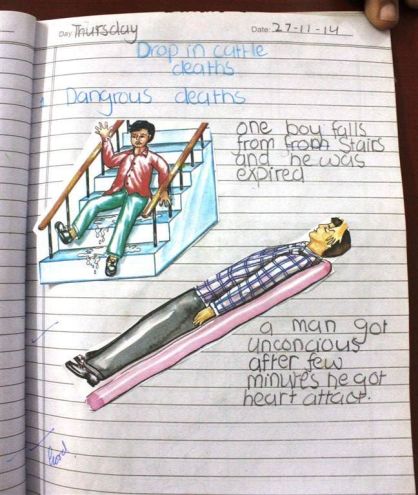 Day Thursday Date: 27-11-14
Drop in cuttle
deaths
Dangrous deaths
one boy falls
from from Stairs
and he was
expired
a man got
unconcious
after few
minutes he got
heart attact.
Good